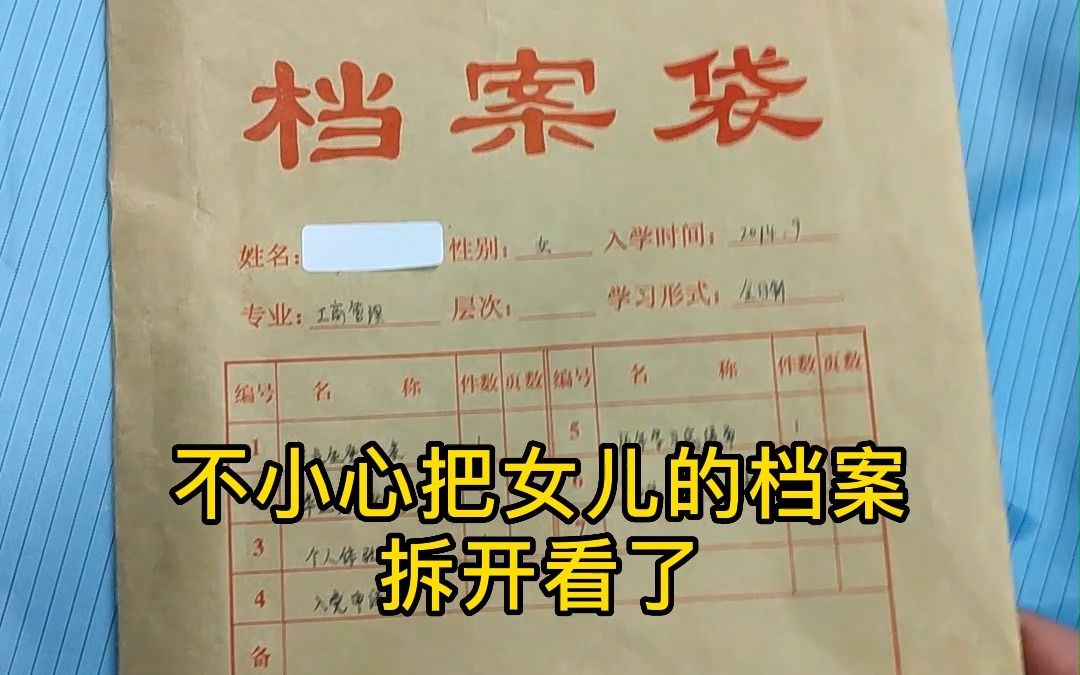 档案袋
姓名: 性别: 女 入学时间: 2014.9
专业: 工商管理 层次: 学习形式: 全日制
编号 名称 件数 页数 编号 名称 件数 页数
1 5 1
6
不小心把女儿的档案
拆开看了
3 个人体检
4 入党申请
备